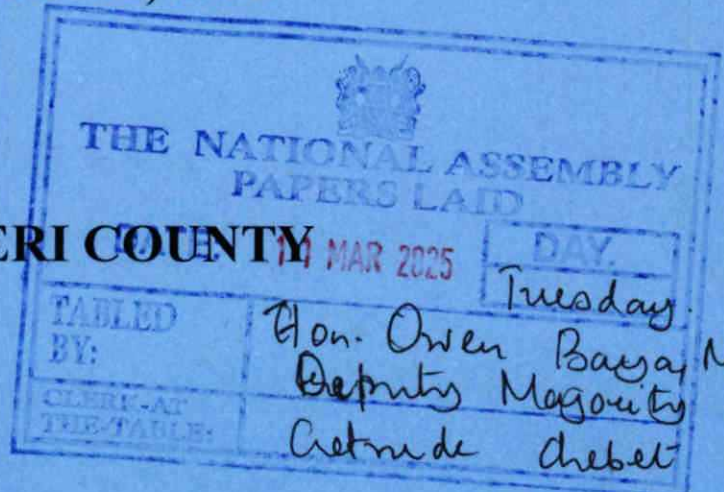 THE NATIONAL ASSEMBLY
PAPERS LAID
ERI COUNTY
DATE: 11 MAR 2025 DAY.
Tuesday.
TABLED BY: Hon. Owen Baya, M
Deputy Majority
CLERK-AT THE-TABLE: Getrude Chebet